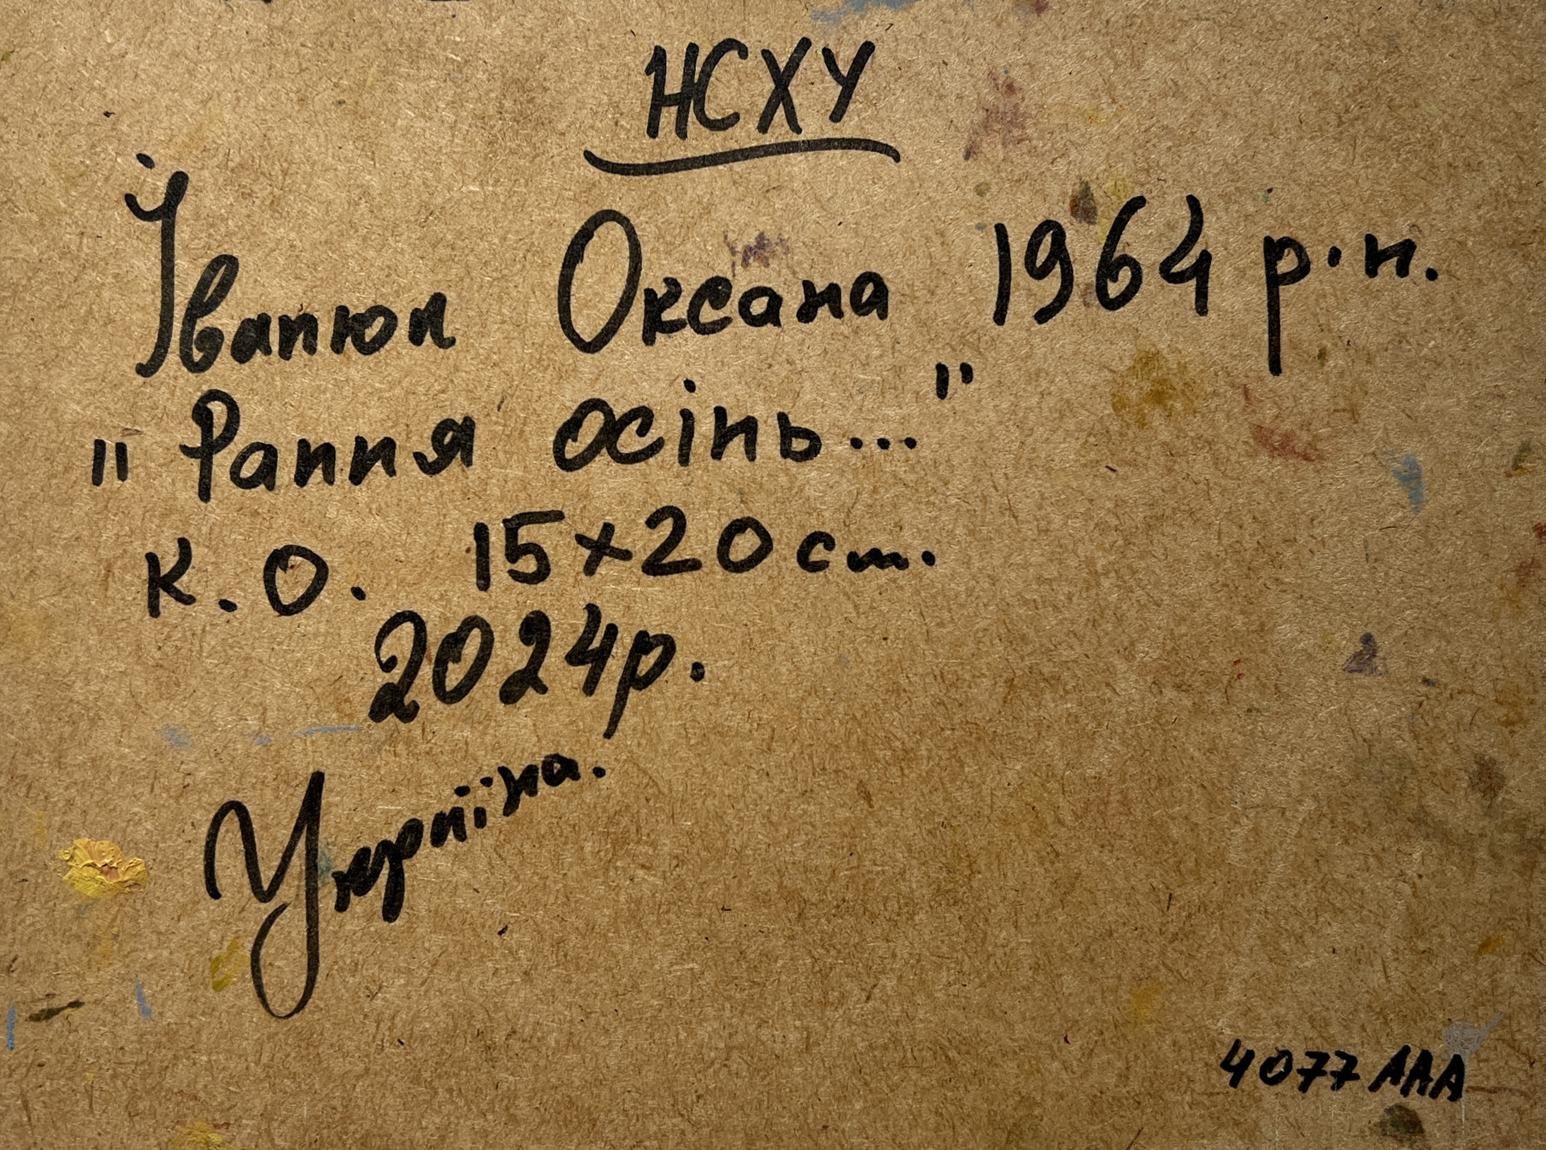 НСХУ
Іванюк Оксана 1964 р.н.
"Рання осінь..."
К.О. 15x20 см.
2024р.
Україна.
4077 AAA